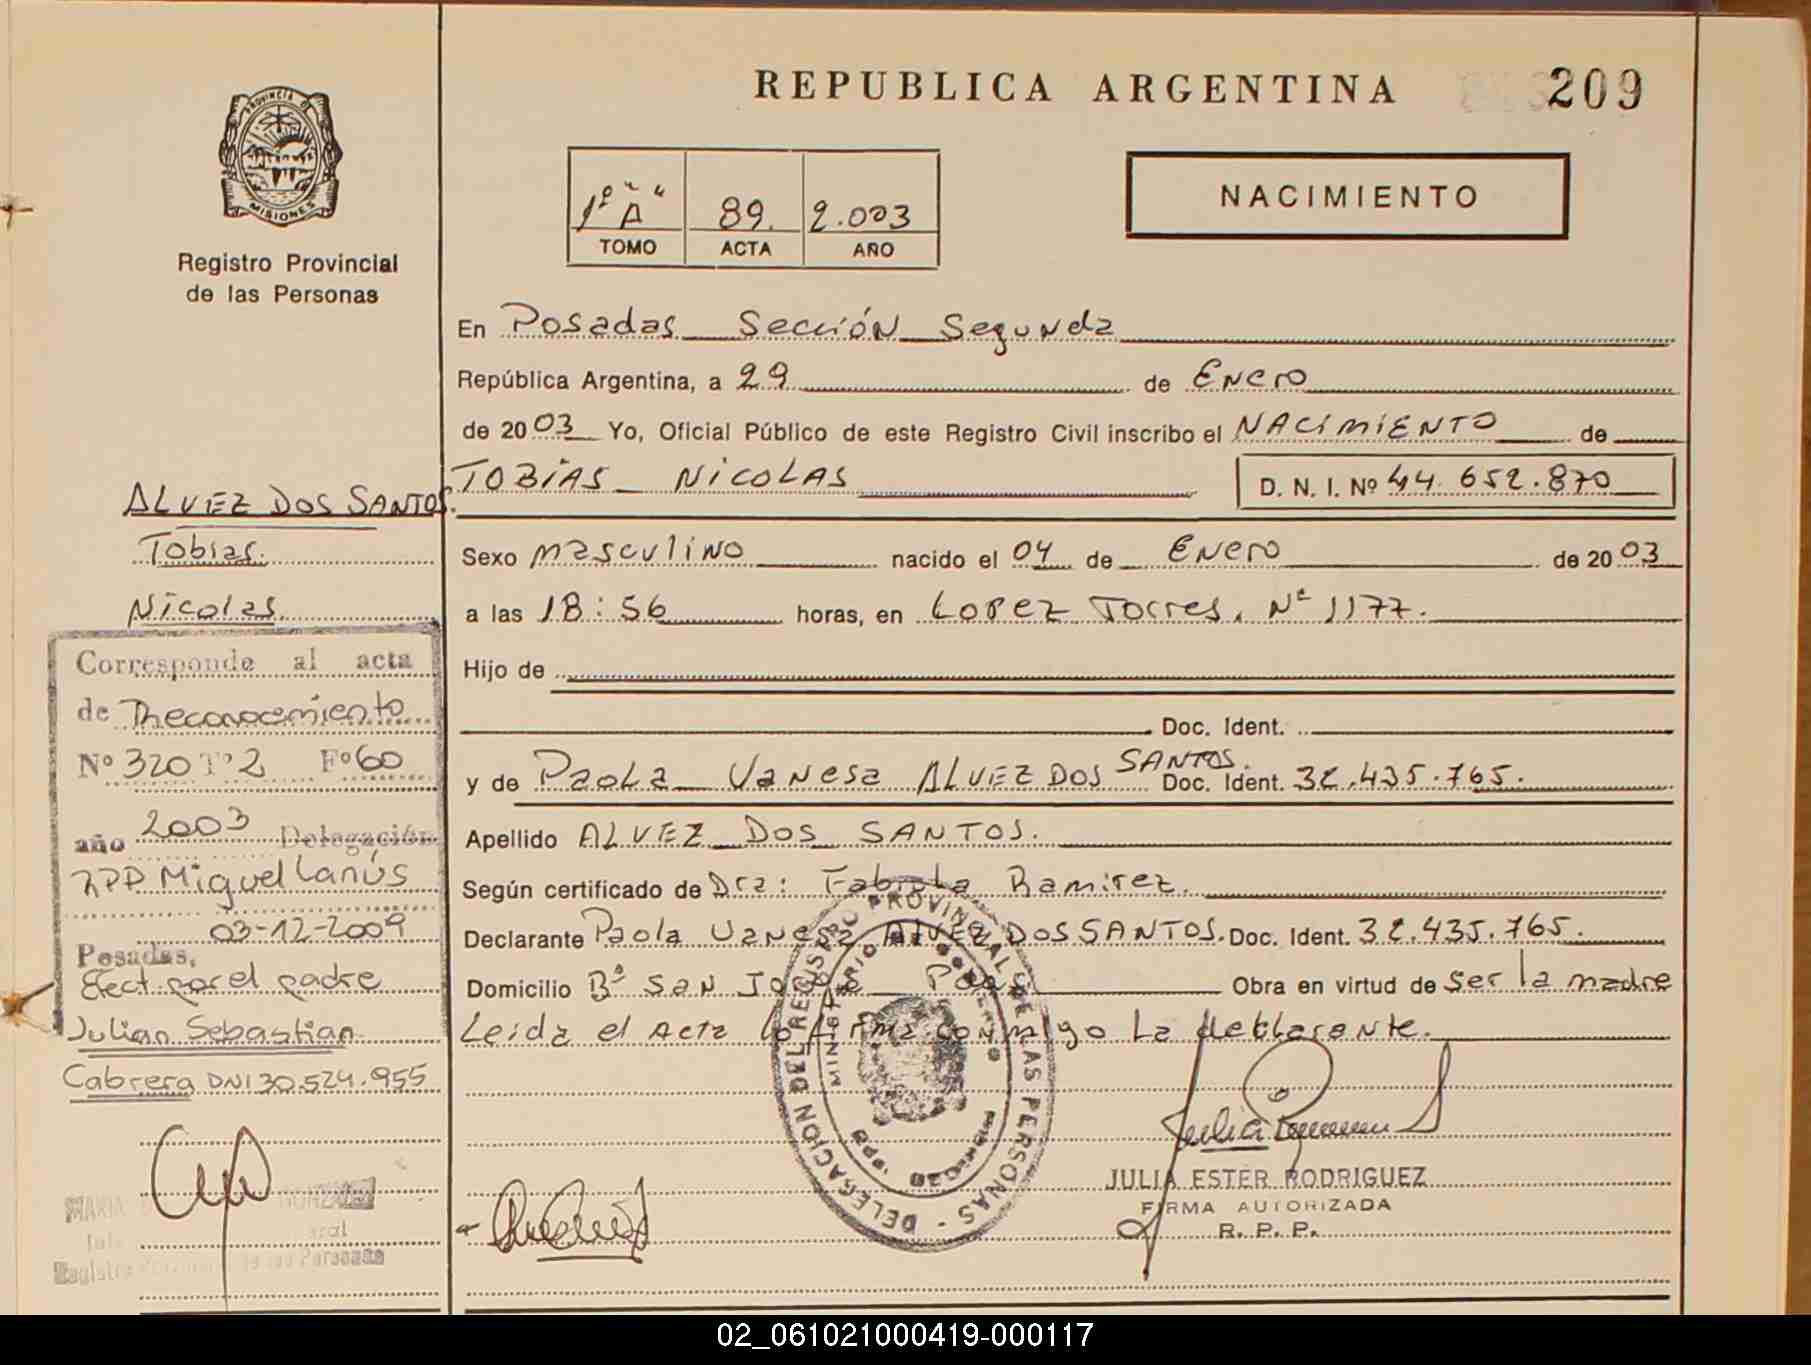 REPUBLICA ARGENTINA 209
PROVINCIA DE
MISIONES
Registro Provincial
de las Personas
1º "A" 89. 2.003
TOMO ACTA AÑO
NACIMIENTO
En Posadas Sección Segunda
República Argentina, a 29 de Enero
de 2003 Yo, Oficial Público de este Registro Civil inscribo el NACIMIENTO de
TOBIAS NICOLAS D. N. I. Nº 44.652.870
Sexo masculino nacido el 04 de Enero de 2003
a las 18:56 horas, en Lopez Torres. Nº 1177.
Hijo de
Doc. Ident.
y de Paola Vanesa ALVEZ DOS SANTOS. Doc. Ident. 32.435.765.
Apellido ALVEZ DOS SANTOS.
Según certificado de Dra: Fabiola Ramirez.
Declarante Paola Vanesa ALVEZ DOS SANTOS. Doc. Ident. 32.435.765.
Domicilio Bº San Jorge Obra en virtud de ser la madre
Leida el Acta lo firma conmigo La declarante.
ALVEZ DOS SANTOS.
Tobias.
Nicolas.
Corresponde al acta
de Reconocimiento
Nº 320 Tº 2 Fº 60
año 2003 Delegación
RPP Miguel Lanús
03-12-2009
Posadas,
Efect. por el padre
Julian Sebastian
Cabrera DNI 30.524.955
MARIA GONZALEZ
Registro de las Personas
DELEGACION DEL REGISTRO PROVINCIAL DE LAS PERSONAS -
MINISTERIO DE GOBIERNO
JULIA ESTER RODRIGUEZ
FIRMA AUTORIZADA
R. P. P.
02_061021000419-000117